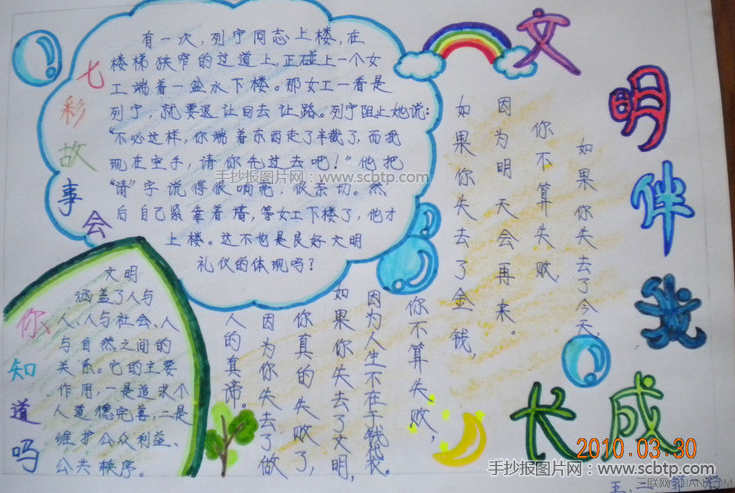 文
明
伴
我
成
长
七彩故事会
有一次,列宁同志上楼,在
楼梯狭窄的过道上,正碰上一个女
工端着一盆水下楼。那女工一看是
列宁,就要退让回去让路。列宁阻止她说:
“不必这样,你端着东西走了半截了,而我
现在空手,请你先过去吧!”他把
“请”字说得很响亮,很亲切。然
后自己紧靠着墙,等女工下楼了,他才
上楼。这不也是良好文明
礼仪的体现吗?
如果你失去了今天,
你不算失败,
因为明天会再来。
如果你失去了金钱,
你不算失败,
因为人生不在于钱袋。
如果你失去了文明,
你真的失败了,
因为你失去了做
人的真谛。
你知道吗
文明
涵盖了人与
人、人与社会、人
与自然之间的
关系。它的主要
作用,一是追求个
人道德完善,二是
维护公众利益、
公共秩序。
手抄报图片网·www.scbtp.com
2010.03.30
手抄报图片网·www.scbtp.com